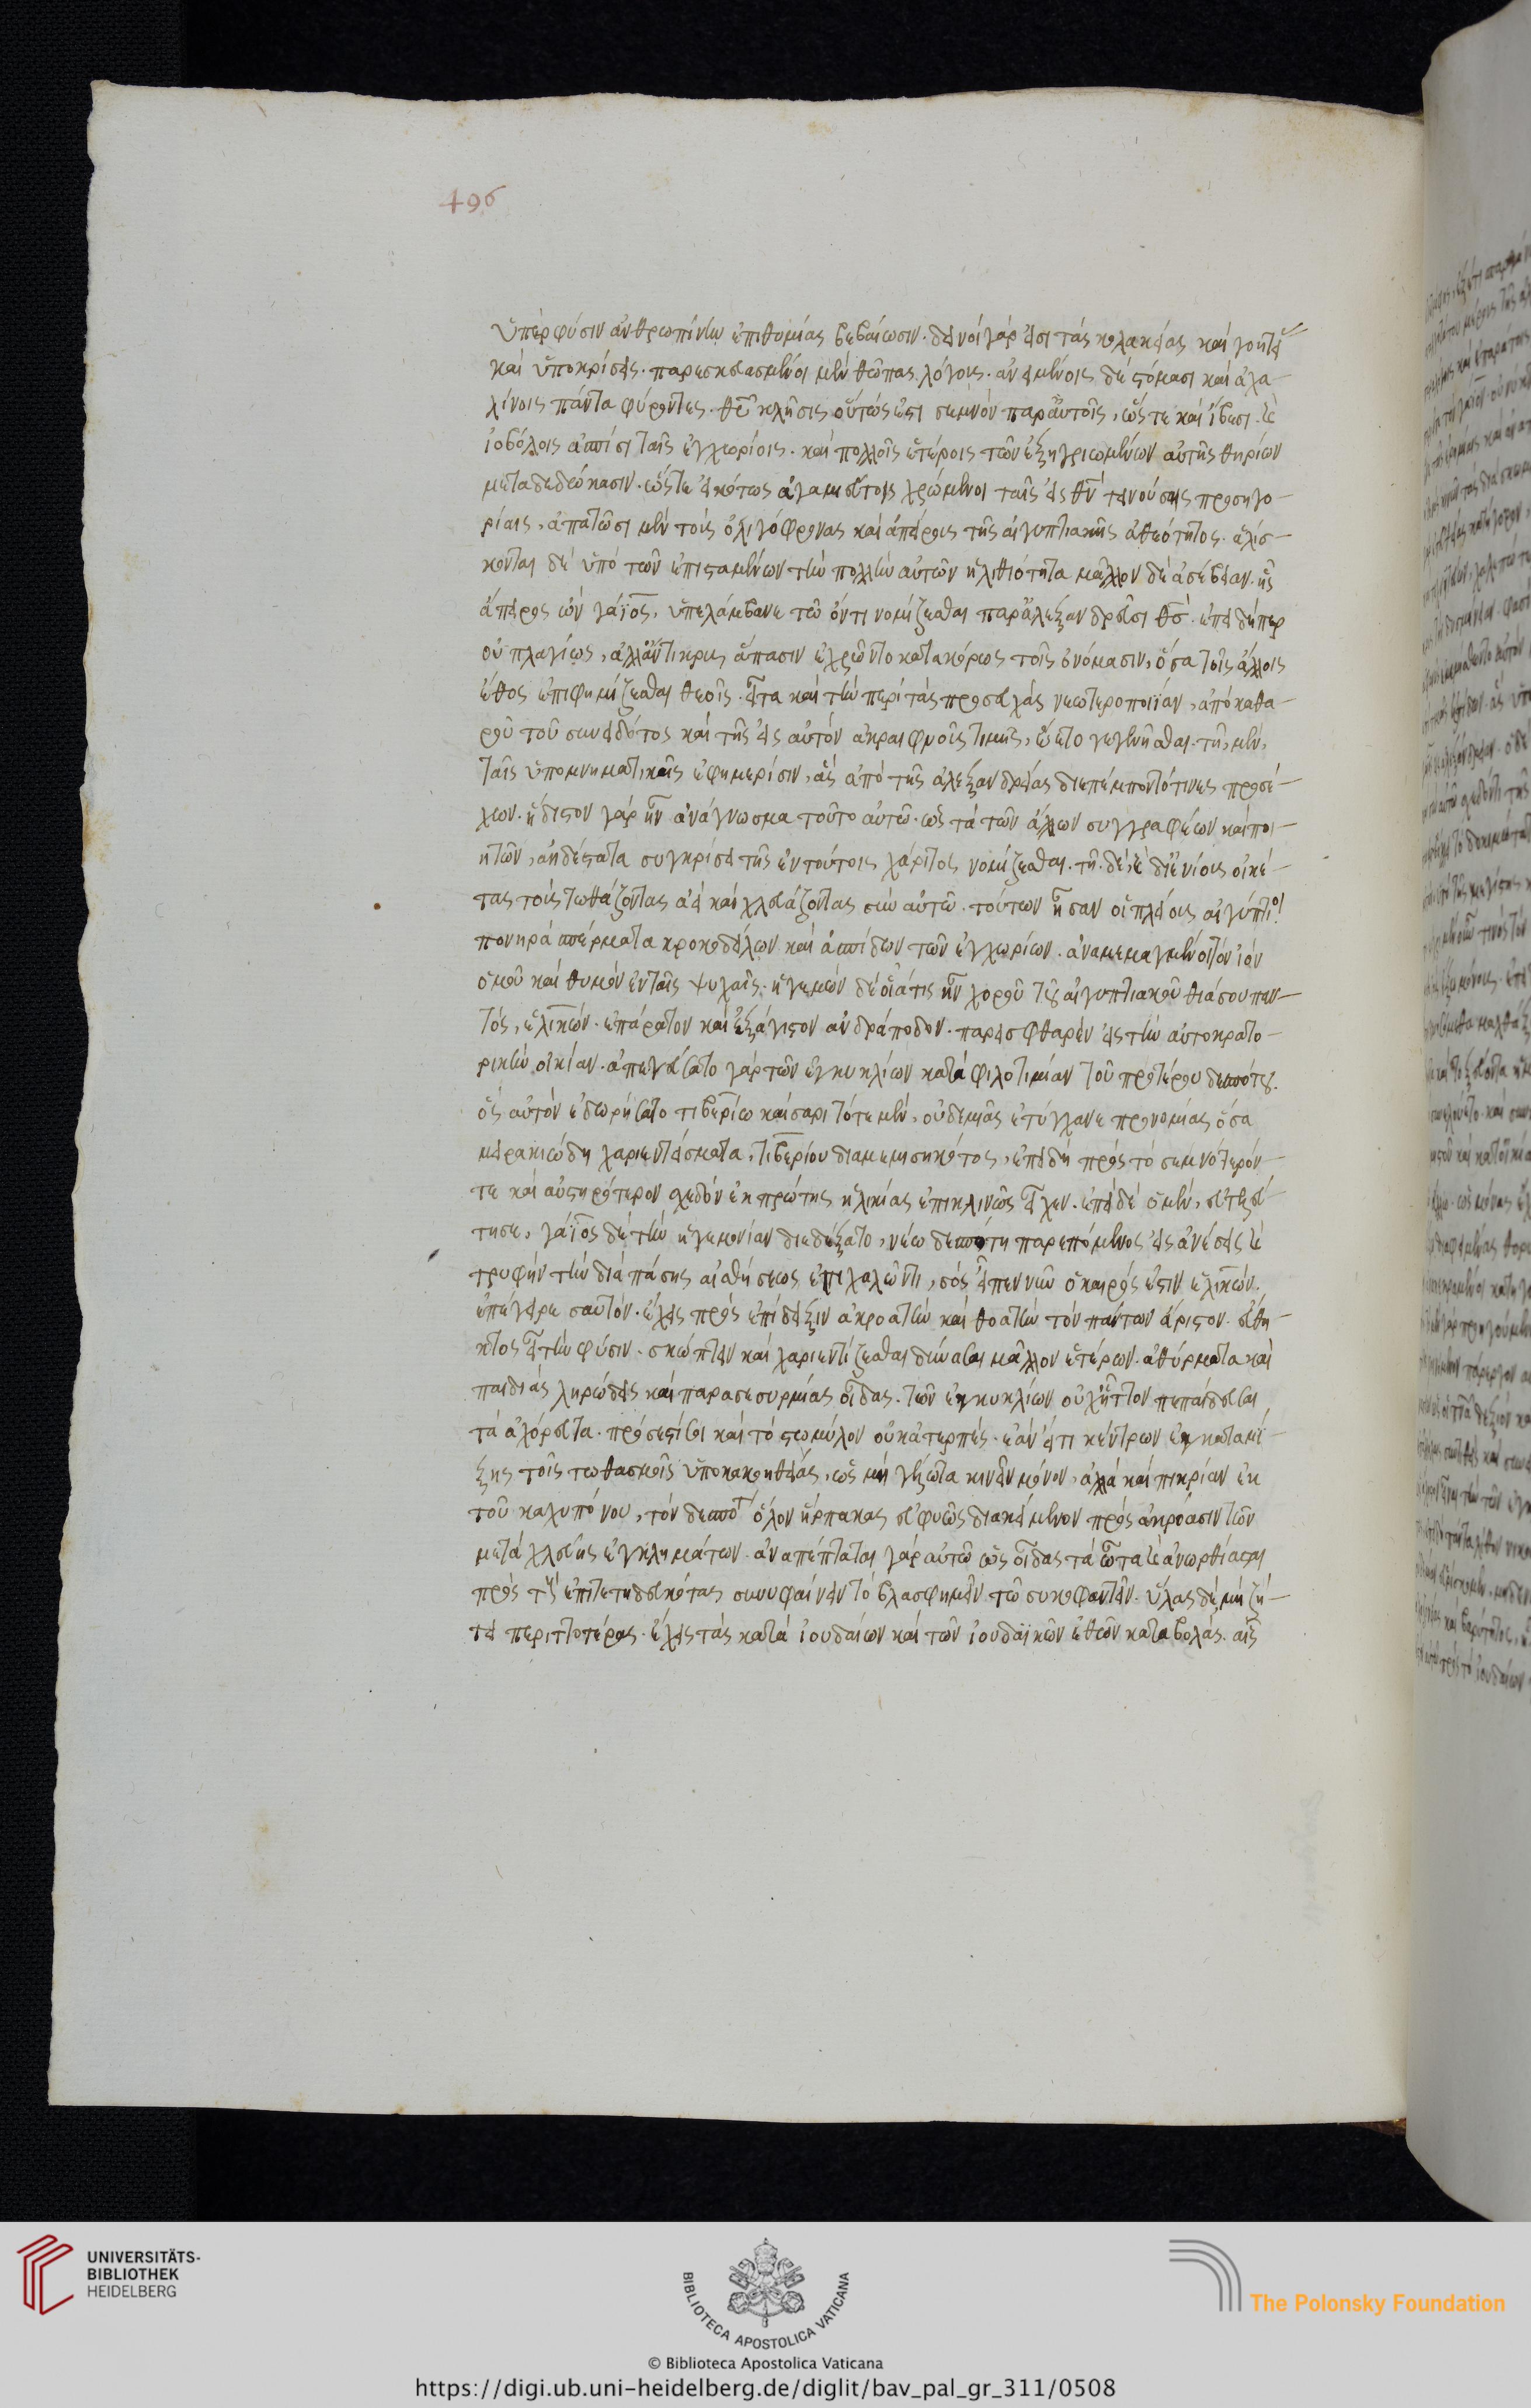 496
ὑπὲρ φύσιν ἀνθρωπίνην ἐπιθυμίας βεβαίωσιν. δεινοὶ γάρ εἰσι τὰς κολακείας καὶ γοητεί
καὶ ὑποκρίσεις. παρεσκευασμένοι μὲν θῶπας λόγους. ἀνειμένοις δὲ στόμασι καὶ ἀχα-
λίνοις πάντα φύροντες. θεοῦ κλῆσις οὕτως ἐστι σεμνὸν παρ' αὐτοῖς, ὥστε καὶ ἴβεσι. καὶ
ἰοβόλοις ἀσπίσι ταῖς ἐγχωρίοις. καὶ πολλοῖς ἑτέροις τῶν ἐξηγριωμένων αὐτῆς θηρίων
μεταδεδώκασιν. ὥστε εἰκότως ἀταμιεύτοις χρώμενοι ταῖς εἰς θν τεινούσαις προσηγο-
ρίαις, ἀπατῶσι μὲν τοὺς ὀλιγόφρονας καὶ ἀπείρους τῆς αἰγυπτιακῆς ἀθεότητος. ἁλίσ-
κονται δὲ ὑπὸ τῶν ἐπισταμένων τὴν πολλὴν αὐτῶν ἠλιθιότητα μᾶλλον δὲ ἀσέβειαν. ἧς
ἄπειρος ὢν γάϊος, ὑπελάμβανε τῷ ὄντι νομίζεσθαι παρ' ἀλεξανδρεῦσι θσ. ἐπειδήπερ
οὐ πλαγίως, ἀλλ' ἄντικρυς ἅπασιν ἐχρῶντο κατακόρως τοῖς ὀνόμασιν, ὅσα τοῖς ἄλλοις
ἔθος ἐπιφημίζεσθαι θεοῖς. εἶτα καὶ τὴν περὶ τὰς προσευχὰς νεωτεροποιΐαν, ἀπὸ καθα-
ροῦ τοῦ συνειδότος καὶ τῆς εἰς αὐτὸν ἀκραιφνοῦς τιμῆς, ᾤετο γεγενῆσθαι. τῆ, μὲν,
ταῖς ὑπομνηματικαῖς ἐφημερίσιν, ἃς ἀπὸ τῆς ἀλεξανδρείας διεπέμποντό τινες προσέ-
χων. ἥδιστον γὰρ ἦν ἀνάγνωσμα τοῦτο αὐτῶ. ὡς τὰ τῶν ἄλλων συγγραφέων καὶ ποι-
ητῶν, ἀηδέστατα συγκρίσει τῆς ἐν τούτοις χάριτος νομίζεσθαι. τῆ. δὲ, καὶ δι' ἐνίους οἰκέ-
τας τοὺς τωθάζοντας ἀεὶ καὶ χλευάζοντας σὺν αὐτῶ. τούτων ἦσαν οἱ πλείους αἰγύπτιοι
πονηρὰ σπέρματα κροκοδείλων καὶ ἀσπίδων τῶν ἐγχωρίων. ἀναμεμαγμένοι τὸν ἰὸν
ὁμοῦ καὶ θυμὸν ἐν ταῖς ψυχαῖς. ἡγεμὼν δὲ οἷά τις ἦν χοροῦ τοῦ αἰγυπτιακοῦ θιάσου παν-
τὸς, ἑλικών. ἐπάρατον καὶ ἐξάγιστον ἀνδράποδον. παρεισφθαρὲν εἰς τὴν αὐτοκρατο-
ρικὴν οἰκίαν. ἀπεγεύσατο γὰρ τῶν ἐγκυκλίων κατὰ φιλοτιμίαν τοῦ προτέρου δεσπότου.
ὃς αὐτὸν ἐδωρήσατο τιβερίω καίσαρι τότε μὲν, οὐδεμιᾶς ἐτύγχανε προνομίας ὅσα
μειρακιώδη χαριεντίσματα, τιβερίου διαμεμισηκότος, ἐπειδὴ πρὸς τὸ σεμνότερόν
τε καὶ αὐστηρότερον σχεδὸν ἐκ πρώτης ἡλικίας ἐπικλινῶς εἶχεν. ἐπεὶ δὲ ὁ μὲν, ἐτελεύ-
τησε, γάϊος δὲ τὴν ἡγεμονίαν διεδέξατο, νέω δεσπότη παρεπόμενος εἰς ἀνέσεις καὶ
τρυφὴν τὴν διὰ πάσης αἰσθήσεως ἐπιχαλῶντι, σὸς εἶπεν νῦν ὁ καιρός ἐστιν ἑλικών.
ἐπέγειρε σαυτόν. ἔχεις πρὸς ἐπίδειξιν ἀκροατὴν καὶ θεατὴν τὸν πάντων ἄριστον. εὔθι-
κτος εἶ τὴν φύσιν. σκώπτειν καὶ χαριεντίζεσθαι δύνασαι μᾶλλον ἑτέρων. ἀθύρματα καὶ
παιδιὰς ληρώδεις καὶ παρασεσυρμένας οἶδας. τῶν ἐγκυκλίων οὐχ ἧττον πεπαίδευσαι
τὰ ἀχόρευτα. πρόσεστί σοι καὶ τὸ στωμύλον οὐκ ἀτερπές. ἐάν ἔτι κέντρων ἐγκαταμί-
ξῃς τοῖς τωθασμοῖς ὑποκακοηθείας, ὡς μὴ γέλωτα κινεῖν μόνον, ἀλλὰ καὶ πικρίαν ἐκ
τοῦ καχυπόνου, τὸν δεσπότ ὅλον ἥρπακας εὐφυῶς διακείμενον πρὸς ἀκρόασιν τῶν
μετὰ χλεύης ἐγκλημάτων. ἀναπέπταται γὰρ αὐτῶ ὡς οἶδας τὰ ὦτα καὶ ἀνωρθίασται
πρὸς τοὺς ἐπιτετηδευκότας συνυφαίνειν τὸ βλασφημεῖν τῶ συκοφαντεῖν. ὕλας δὲ, μὴ ζή-
τει περιττοτέρας. ἔχεις τὰς κατὰ ἰουδαίων καὶ τῶν ἰουδαϊκῶν ἐθῶν καταβολάς. αἷς
UNIVERSITÄTS-
BIBLIOTHEK
HEIDELBERG
BIBLIOTECA APOSTOLICA VATICANA
The Polonsky Foundation
© Biblioteca Apostolica Vaticana
https://digi.ub.uni-heidelberg.de/diglit/bav_pal_gr_311/0508